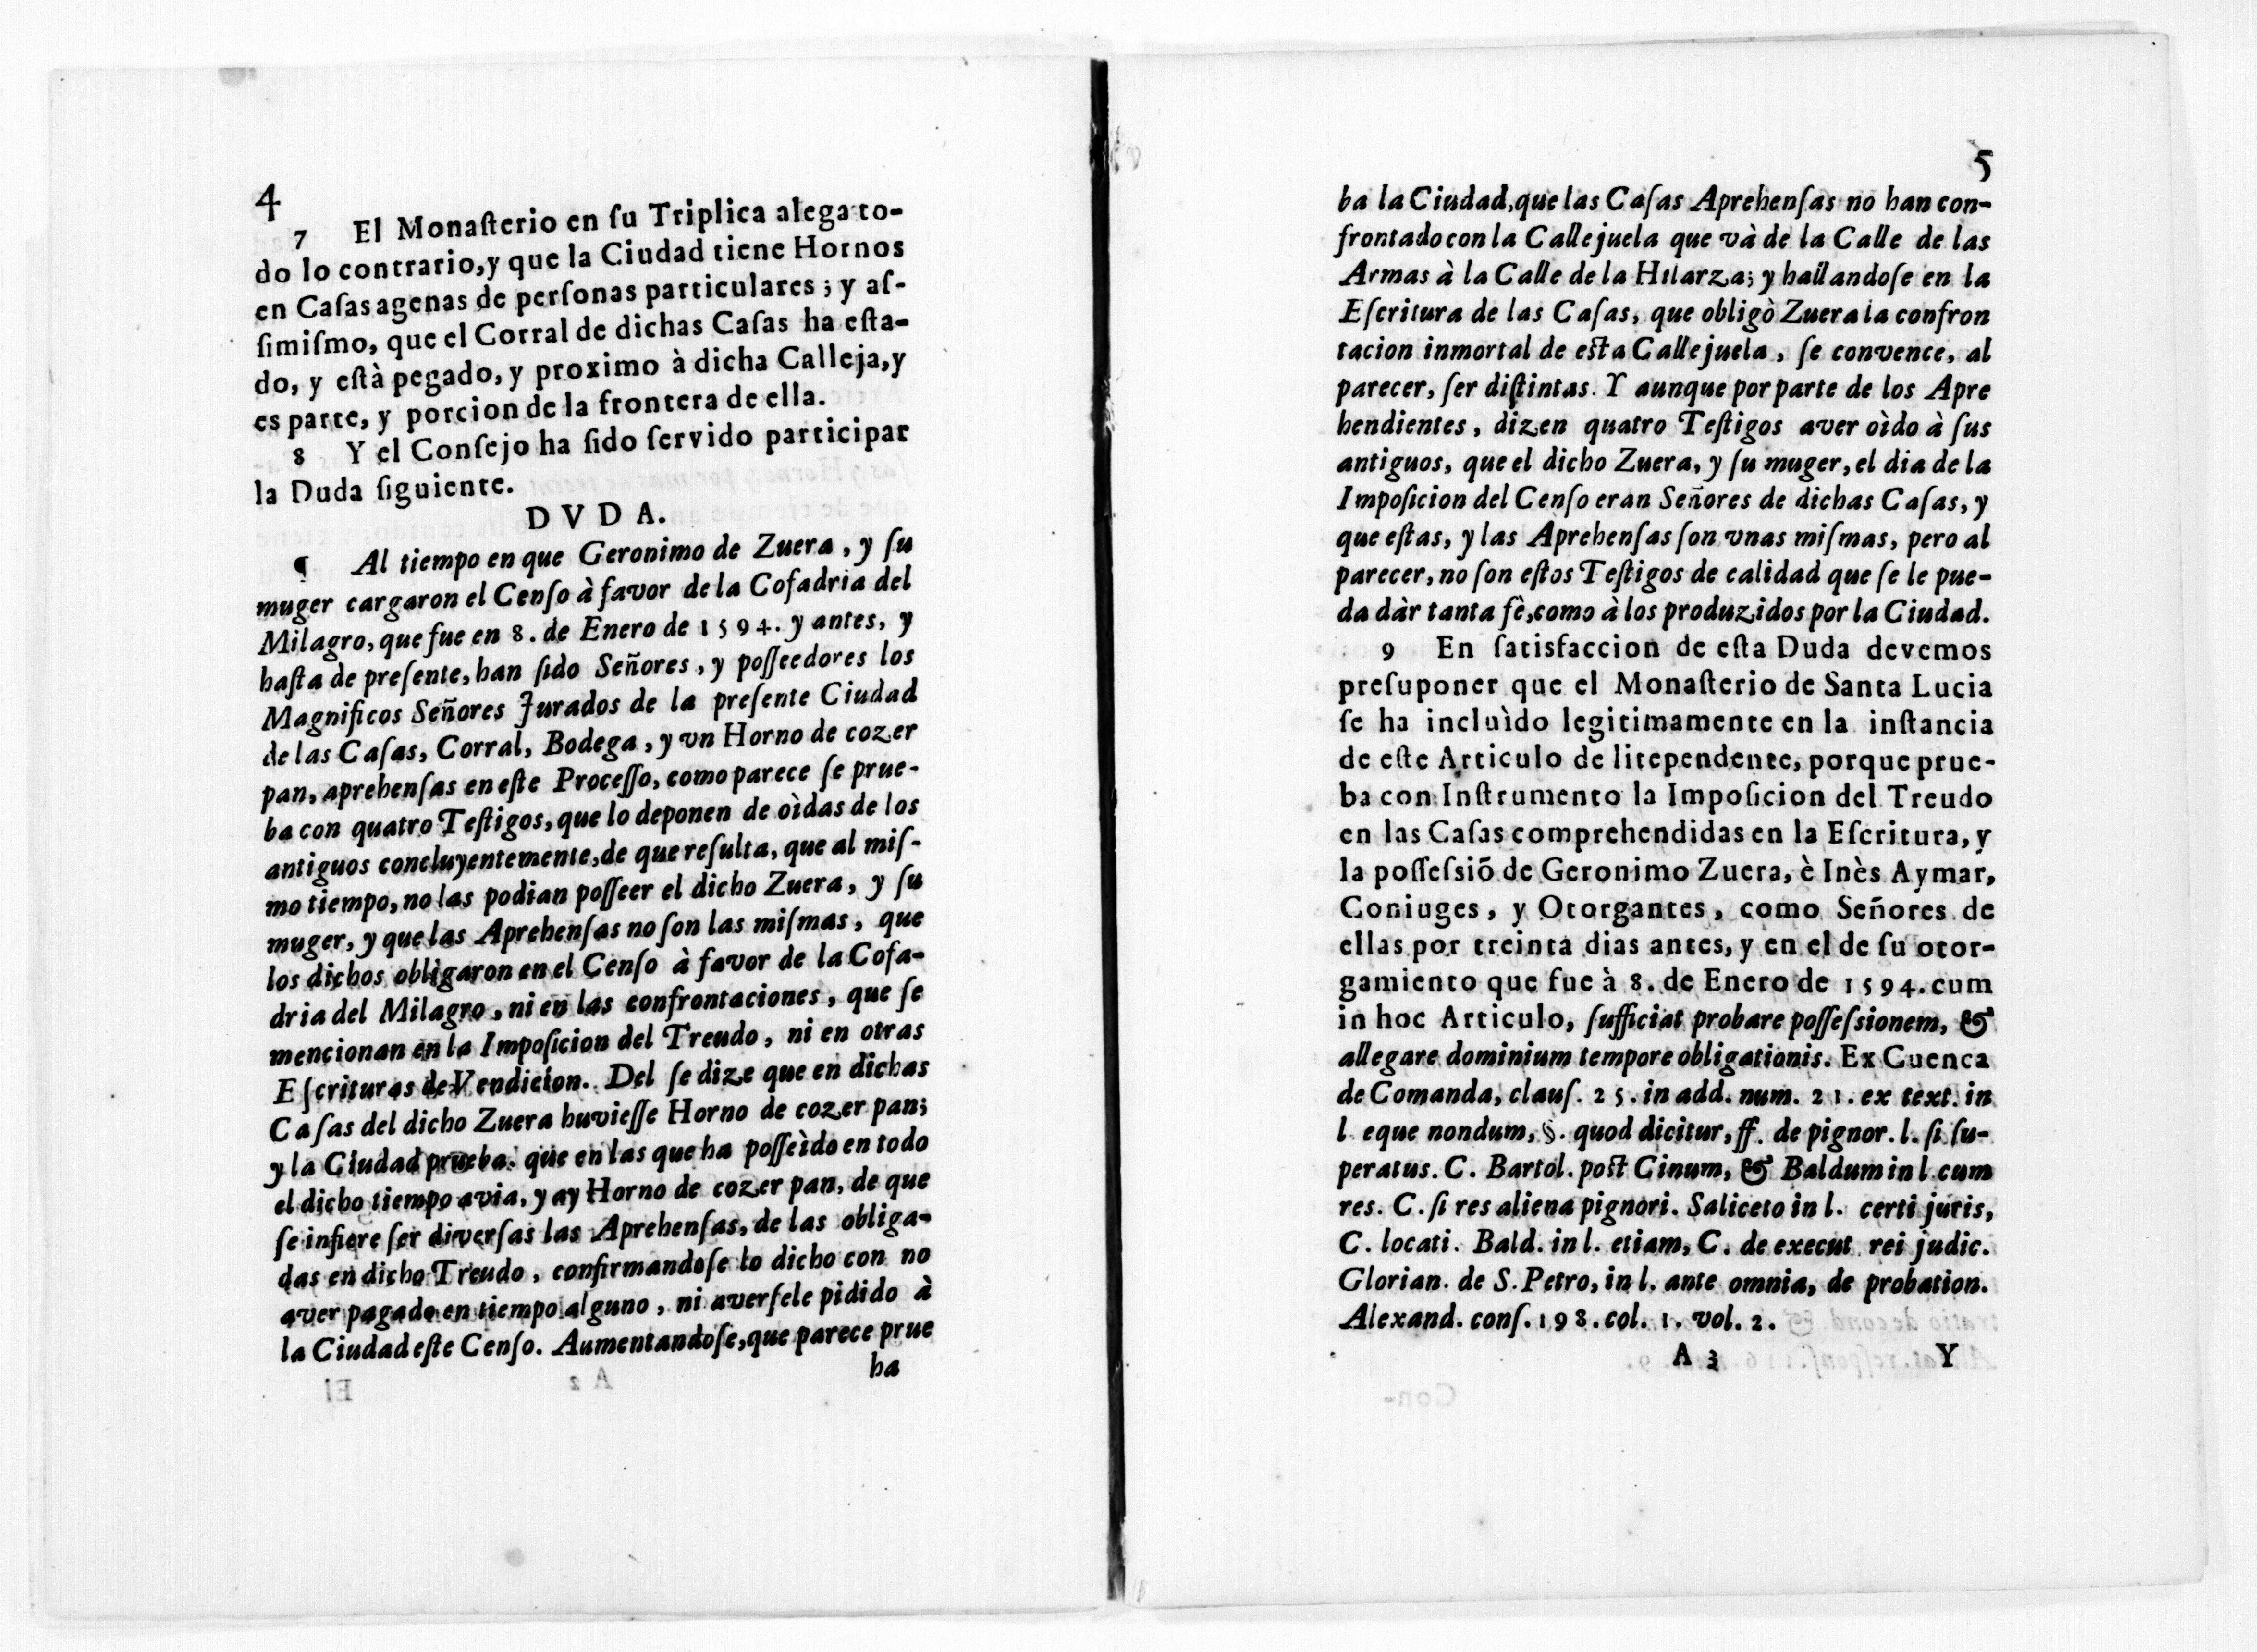 4
7 El Monaſterio en ſu Triplica alega to-
do lo contrario, y que la Ciudad tiene Hornos
en Caſas agenas de perſonas particulares; y aſ-
ſimiſmo, que el Corral de dichas Caſas ha eſta-
do, y eſtà pegado, y proximo à dicha Calleja, y
es parte, y porcion de la frontera de ella.
8 Y el Conſejo ha ſido ſervido participar
la Duda ſiguiente.
DVDA.
¶ Al tiempo en que Geronimo de Zuera, y ſu
muger cargaron el Cenſo à favor de la Cofadria del
Milagro, que fue en 8. de Enero de 1594. y antes, y
haſta de preſente, han ſido Señores, y poſſeedores los
Magnificos Señores Jurados de la preſente Ciudad
de las Caſas, Corral, Bodega, y vn Horno de cozer
pan, aprehenſas en eſte Proceſſo, como parece ſe prue-
ba con quatro Teſtigos, que lo deponen de oìdas de los
antiguos concluyentemente, de que reſulta, que al miſ-
mo tiempo, no las podian poſſeer el dicho Zuera, y ſu
muger, y que las Aprehenſas no ſon las miſmas, que
los dichos obligaron en el Cenſo à favor de la Cofa-
dria del Milagro, ni en las confrontaciones, que ſe
mencionan en la Impoſicion del Treudo, ni en otras
Eſcrituras de Vendicion. Del ſe dize que en dichas
Caſas del dicho Zuera huvieſſe Horno de cozer pan;
y la Ciudad prueba. que en las que ha poſſeìdo en todo
el dicho tiempo avia, y ay Horno de cozer pan, de que
ſe infiere ſer diverſas las Aprehenſas, de las obliga-
das en dicho Treudo, confirmandoſe lo dicho con no
aver pagado en tiempo alguno, ni averſele pidido à
la Ciudad eſte Cenſo. Aumentandoſe, que parece prue
ba
5
ba la Ciudad, que las Caſas Aprehenſas no han con-
frontado con la Callejuela que và de la Calle de las
Armas à la Calle de la Hilarza; y hallandoſe en la
Eſcritura de las Caſas, que obligò Zuera la confron
tacion inmortal de eſta Callejuela, ſe convence, al
parecer, ſer diſtintas. Y aunque por parte de los Apre
hendientes, dizen quatro Teſtigos aver oìdo à ſus
antiguos, que el dicho Zuera, y ſu muger, el dia de la
Impoſicion del Cenſo eran Señores de dichas Caſas, y
que eſtas, y las Aprehenſas ſon vnas miſmas, pero al
parecer, no ſon eſtos Teſtigos de calidad que ſe le pue-
da dàr tanta fè, como à los produzidos por la Ciudad.
9 En ſatisfaccion de eſta Duda devemos
preſuponer que el Monaſterio de Santa Lucia
ſe ha incluìdo legitimamente en la inſtancia
de eſte Articulo de litependente, porque prue-
ba con Inſtrumento la Impoſicion del Treudo
en las Caſas comprehendidas en la Eſcritura, y
la poſſeſsiõ de Geronimo Zuera, è Inès Aymar,
Coniuges, y Otorgantes, como Señores de
ellas por treinta dias antes, y en el de ſu otor-
gamiento que fue à 8. de Enero de 1594. cum
in hoc Articulo, ſufficiat probare poſſeſsionem, &
allegare dominium tempore obligationis. Ex Cuenca
de Comanda, clauſ. 25. in add. num. 21. ex text. in
l eque nondum, §. quod dicitur, ff. de pignor. l. ſi ſu-
peratus. C. Bartol. poſt Cinum, & Baldum in l. cum
res. C. ſi res aliena pignori. Saliceto in l. certi juris,
C. locati. Bald. in l. etiam, C. de execut rei judic.
Glorian. de S. Petro, in l. ante omnia, de probation.
Alexand. conſ. 198. col. 1. vol. 2.
A 3 Y